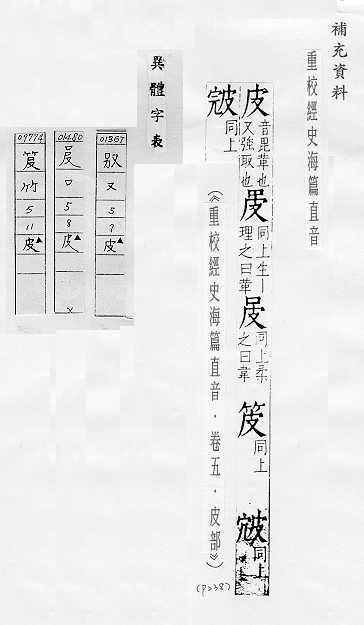 補充資料
重校經史海篇直音
皮 音毘韋也 又強取也
同上生丨 理之曰韋
同上柔 之曰韋
笈 同上
同上
同上
(《重校經史海篇直音.卷五.皮部》)
(P238)
異體字表
01367
又
5
7
皮▲
01480
口
5
8
皮▲
x
09774
竹
5
11
皮▲